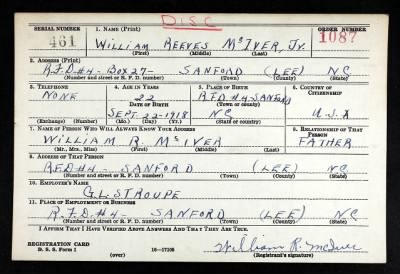 DISC
SERIAL NUMBER 1. NAME (Print) ORDER NUMBER
461 WILLIAM REEVES McIVER, JR. 1087
(First) (Middle) (Last)
2. ADDRESS (Print)
R.F.D #4 - BOX 27 - SANFORD (LEE) NC
(Number and street or R. F. D. number) (Town) (County) (State)
3. TELEPHONE 4. AGE IN YEARS 5. PLACE OF BIRTH 6. COUNTRY OF CITIZENSHIP
NONE 22 RFD #4-SANFORD
DATE OF BIRTH (Town or county)
SEPT-22-1918 NC U.S.A
(Exchange) (Number) (Mo.) (Day) (Yr.) (State or country)
7. NAME OF PERSON WHO WILL ALWAYS KNOW YOUR ADDRESS 8. RELATIONSHIP OF THAT PERSON
WILLIAM R. McIVER FATHER
(Mr., Mrs., Miss) (First) (Middle) (Last)
9. ADDRESS OF THAT PERSON
R.F.D #4 - SANFORD (LEE) NC
(Number and street or R. F. D. number) (Town) (County) (State)
10. EMPLOYER'S NAME
G. L. STROUPE
11. PLACE OF EMPLOYMENT OR BUSINESS
R.F.D. #4 - SANFORD (LEE) NC
(Number and street or R. F. D. number) (Town) (County) (State)
I AFFIRM THAT I HAVE VERIFIED ABOVE ANSWERS AND THAT THEY ARE TRUE.
REGISTRATION CARD
D. S. S. Form 1 16-17105 William R. McIver
(over) (Registrant's signature)